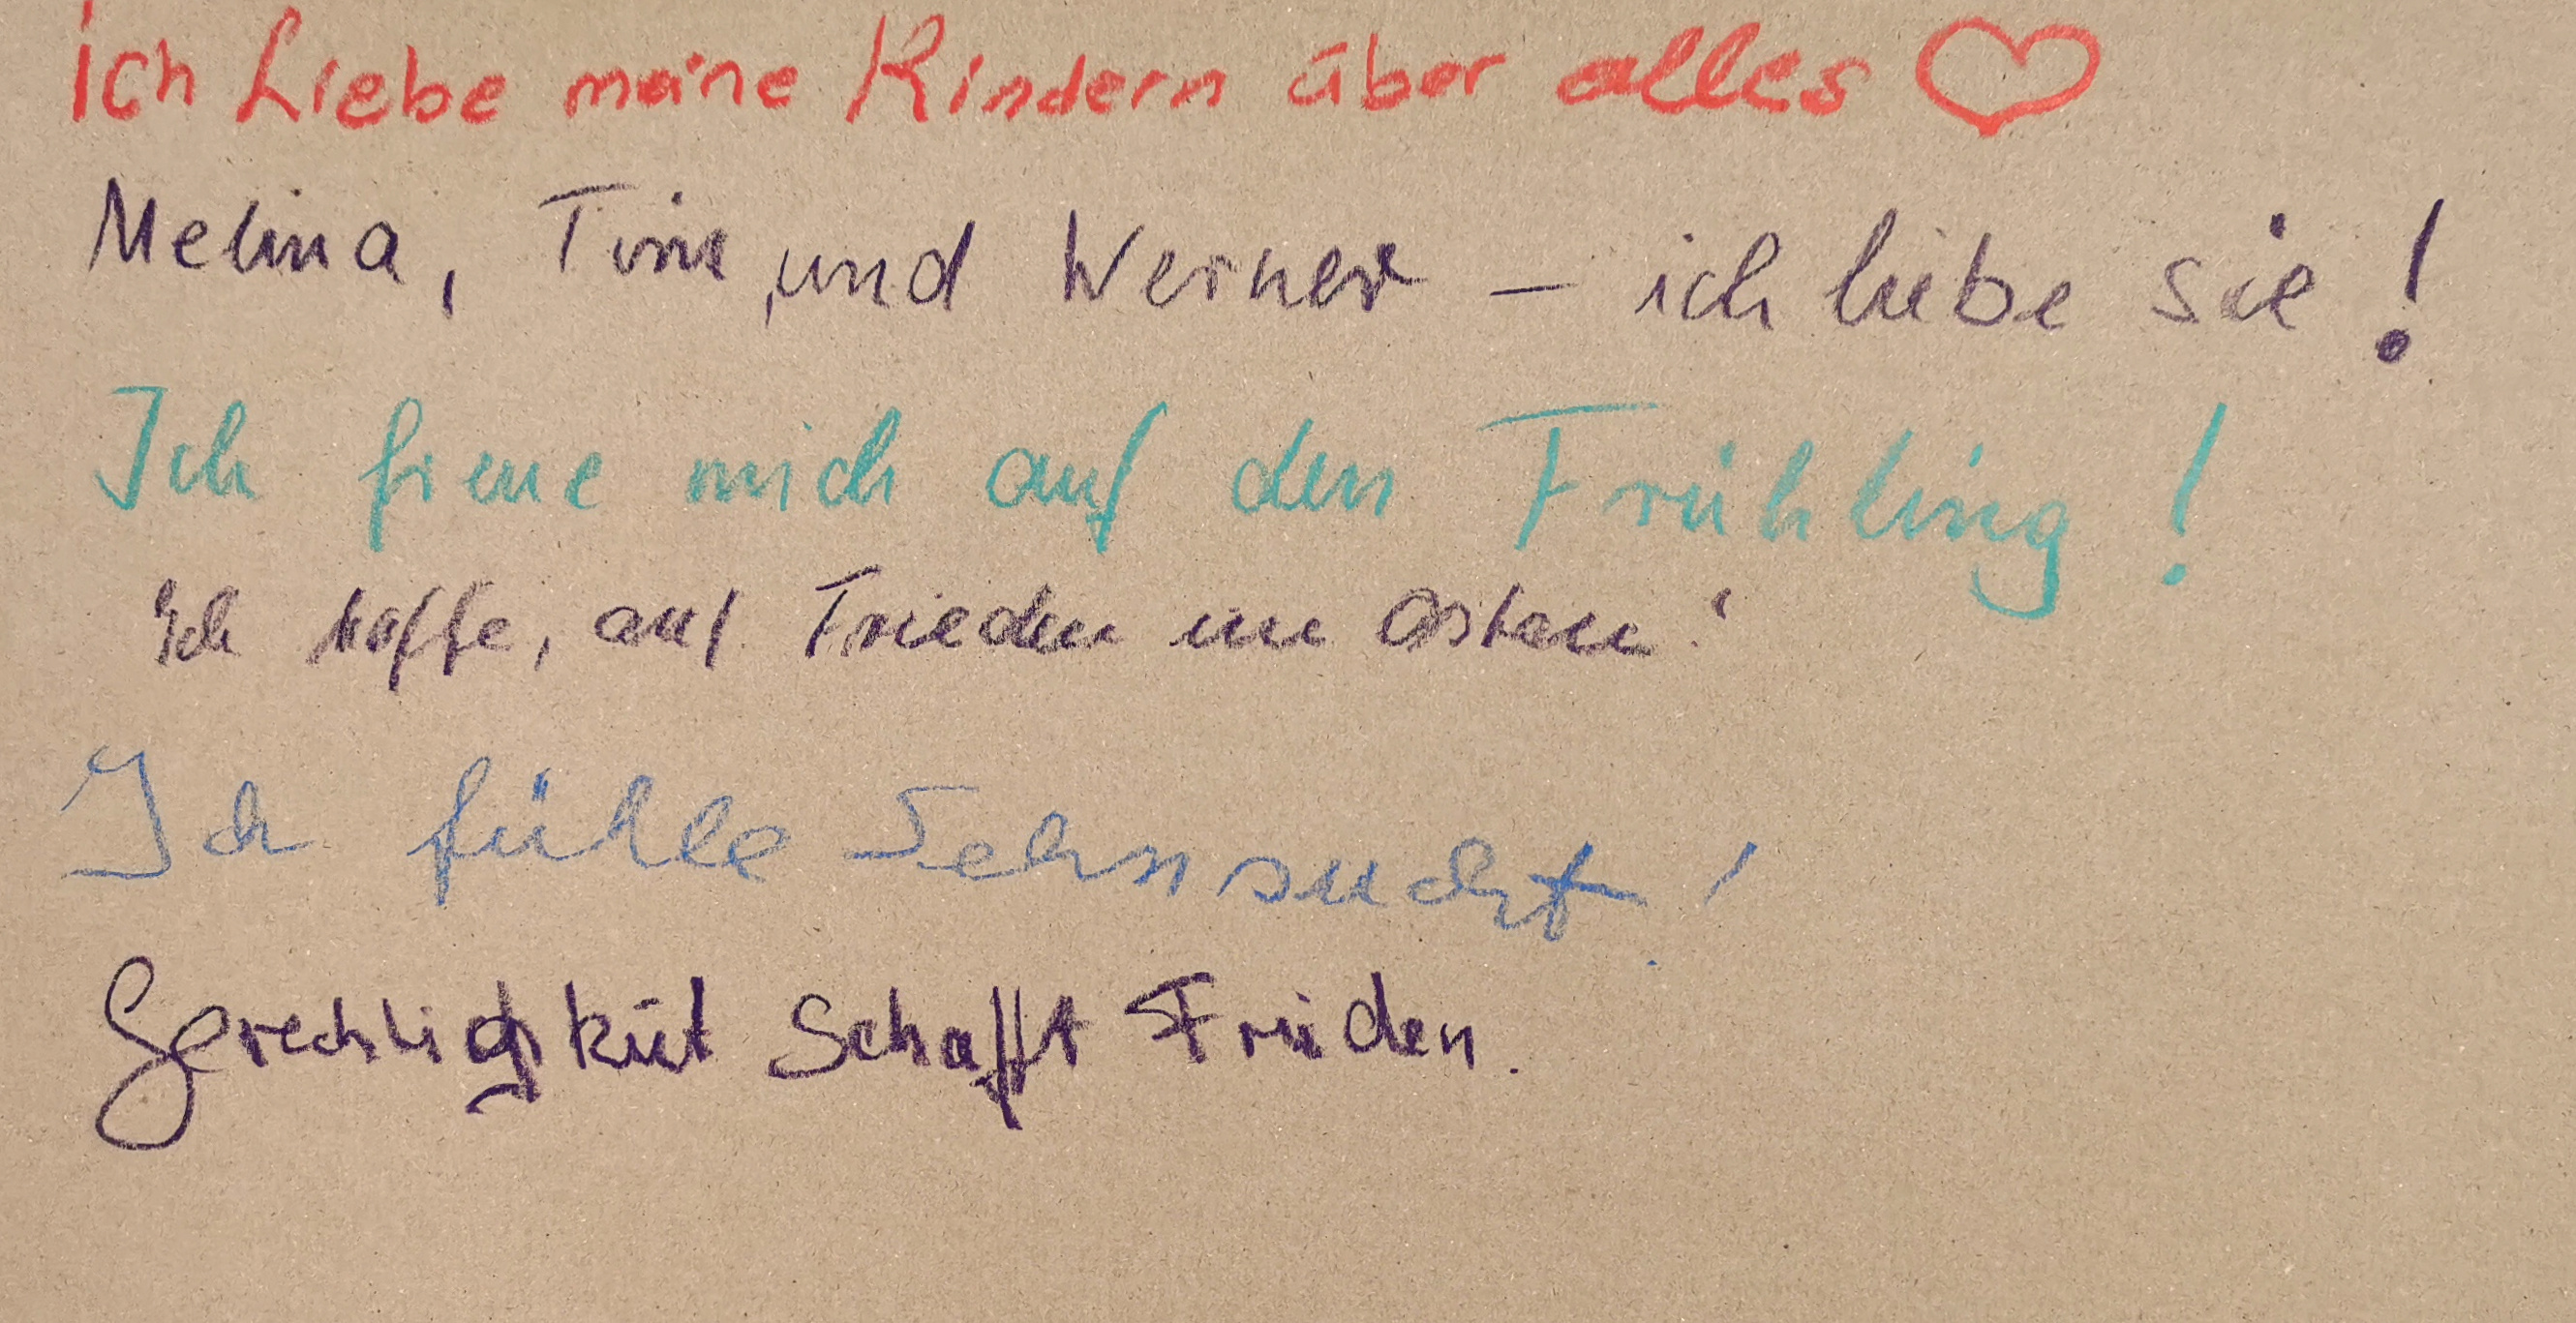 ich Liebe meine Kindern über alles ♡
Melina, Tim, und Werner – ich liebe sie!
Ich freue mich auf den Frühling!
Ich hoffe, auf Frieden im Osten!
Ich fühle Sehnsucht!
Gerechtigkeit Schafft Frieden.